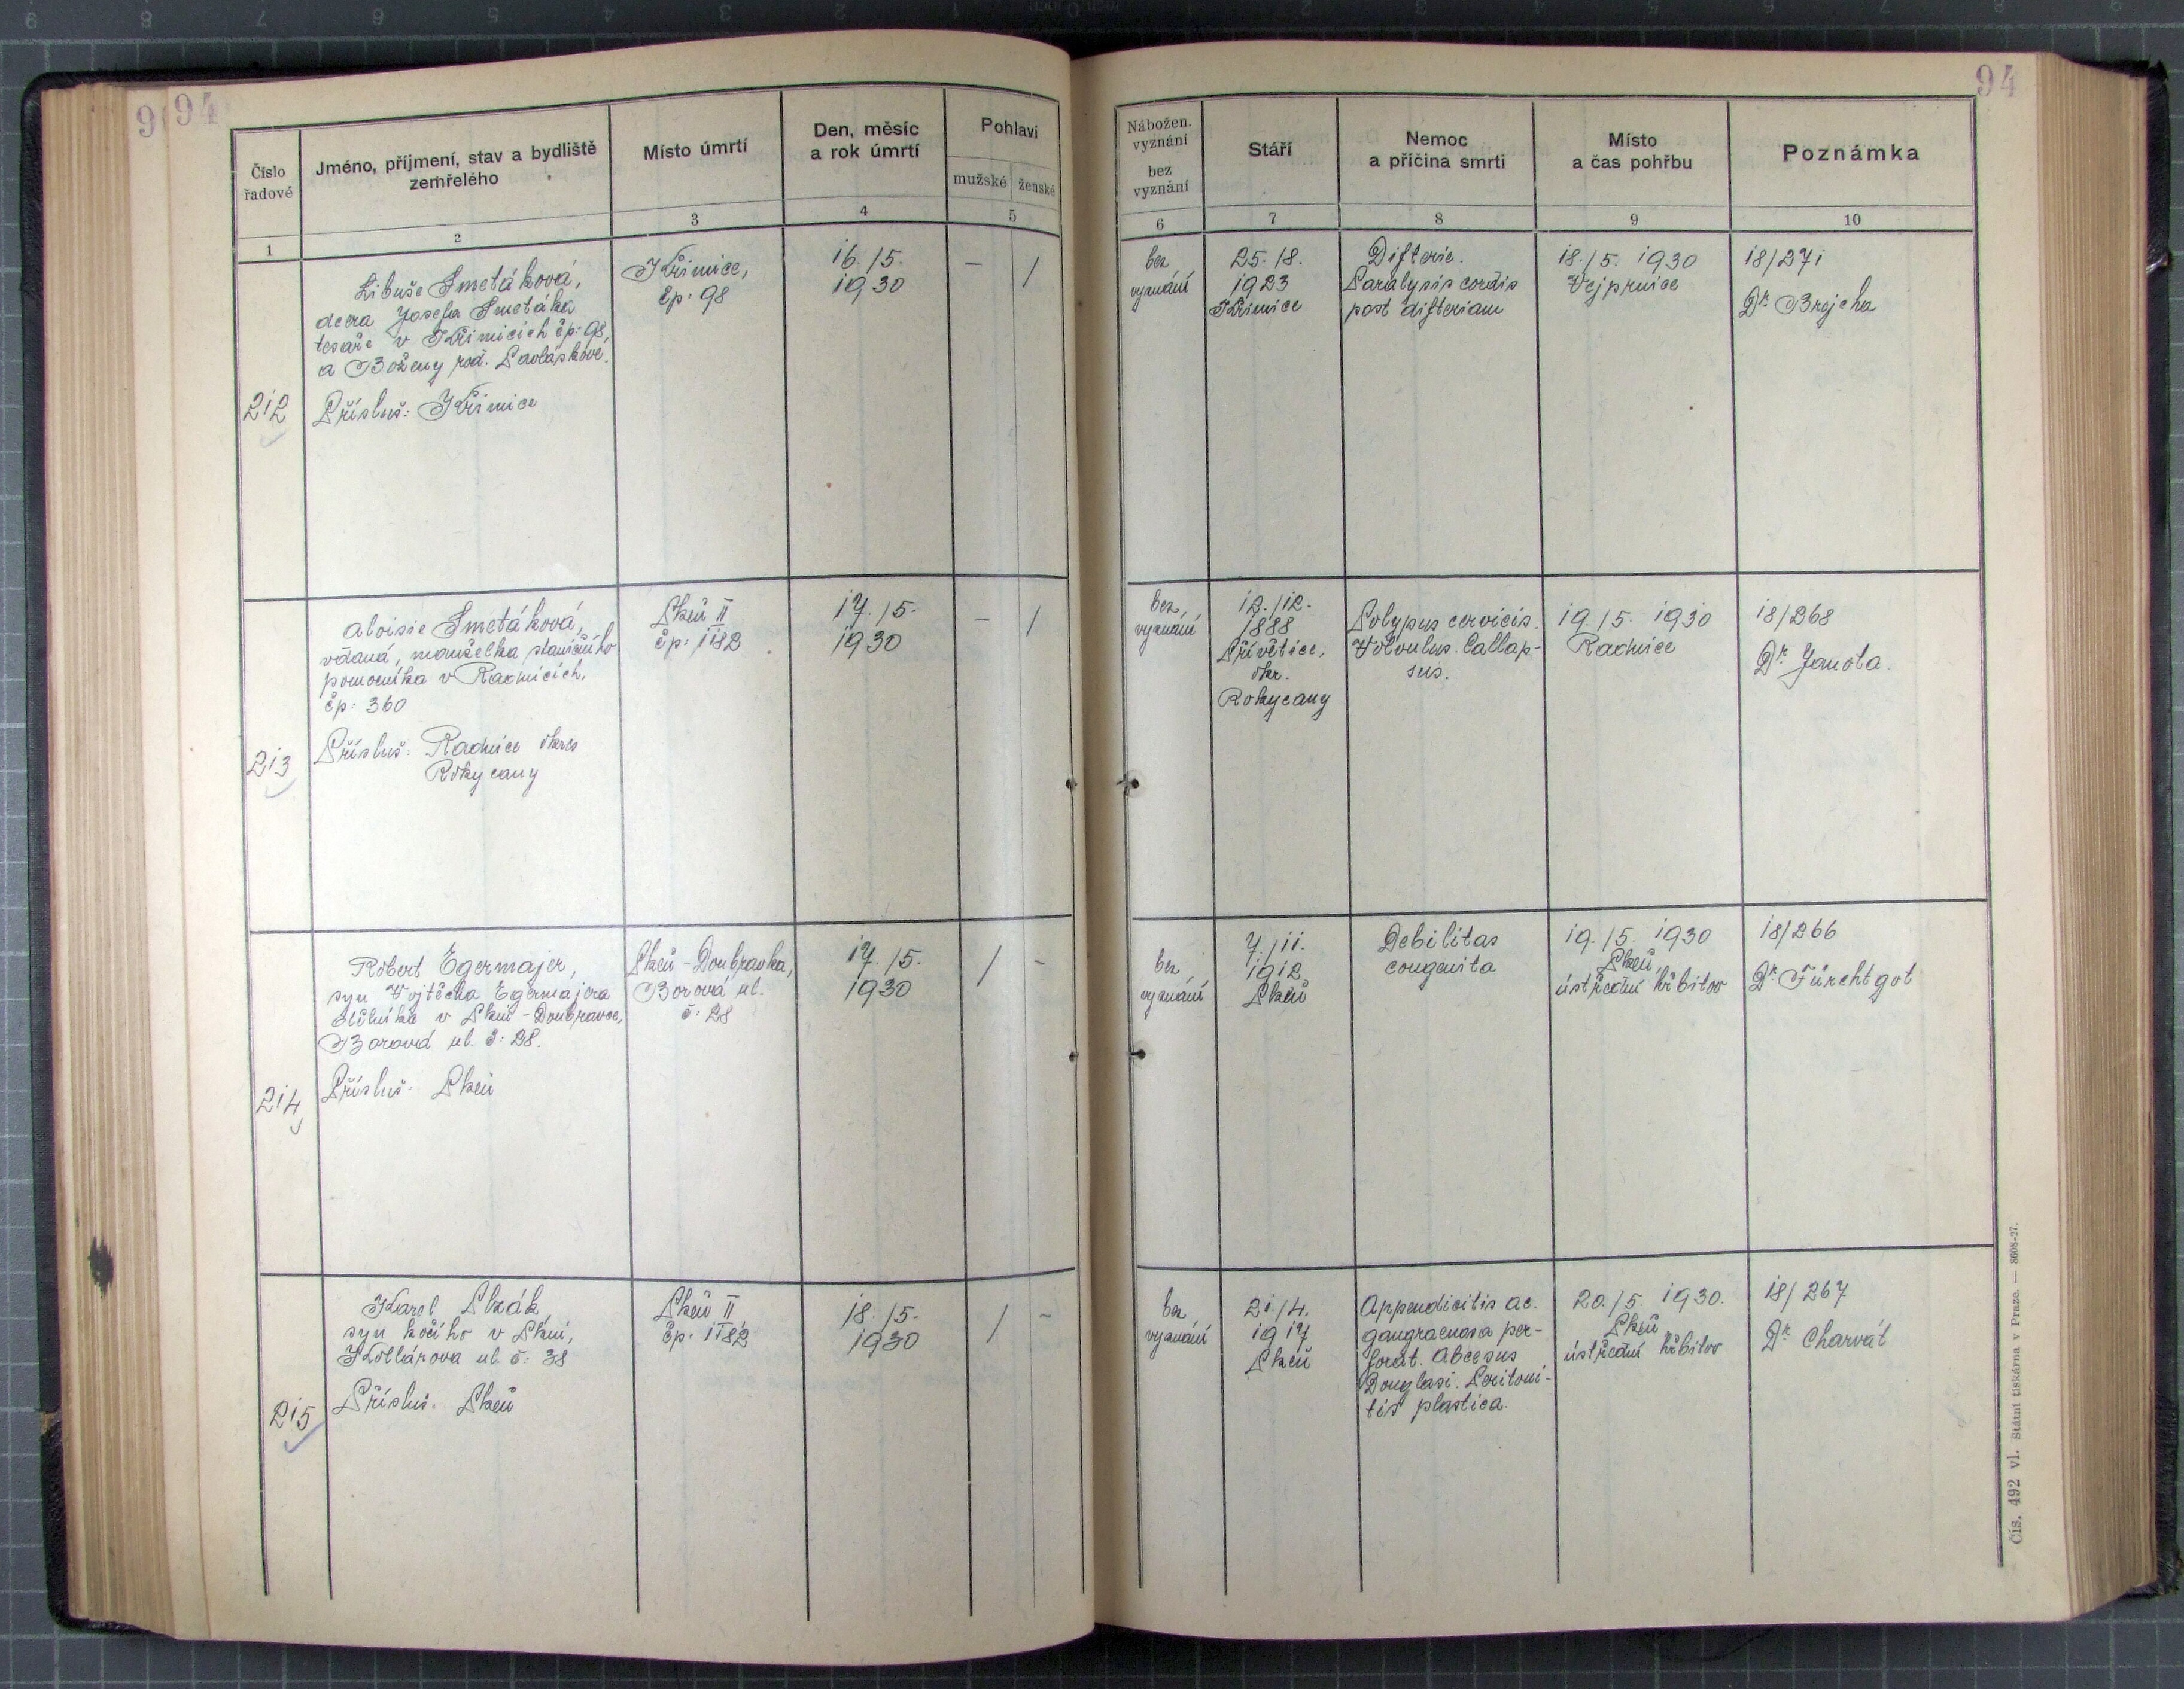 94
94
9
Číslo
řadové
Jméno, příjmení, stav a bydliště
zemřelého
Místo úmrtí
Den, měsíc
a rok úmrtí
Pohlaví
mužské
ženské
Nábožen.
vyznání
bez
vyznání
Stáří
Nemoc
a příčina smrti
Místo
a čas pohřbu
Poznámka
1
2
3
4
5
6
7
8
9
10
212
Libuše Smetáková,
dcera Josefa Smetáka
tesaře v Křimicích čp: 98,
a Boženy roz. Pavláskové.
Přísluš: Křimice
Křimice,
čp: 98
16./5.
1930
— /
bez
vyznání
25./8.
1923
Křimice
Difterie.
Paralysis cordis
post difteriam
18./5. 1930
Vejprnice
18/271
Dr Brejcha
213
Aloisie Smetáková,
vdaná, manželka staničního
pomocníka v Radnicích,
čp: 360
Přísluš: Radnice okres
Rokycany
Plzeň II
čp: 1182
17./5.
1930
— /
bez
vyznání
12./12.
1888
Přívětice,
okr.
Rokycany
Polypus cervicis.
Volvulus. Collap-
sus.
19./5. 1930
Radnice
18/268
Dr Janota.
214
Robert Egermajer,
syn Vojtěcha Egermajera
dělníka v Plzni-Doubravce,
Borová ul. č: 28.
Přísluš: Plzeň
Plzeň-Doubravka,
Borová ul.
č: 28
17./5.
1930
/ -
bez
vyznání
7./11.
1912
Plzeň
Debilitas
congenita
19./5. 1930
Plzeň,
ústřední hřbitov
18/266
Dr Fürchtgot
215
Karel Slzák
syn kočího v Plzni,
Kollárova ul. č: 38
Přísluš: Plzeň
Plzeň II
čp: 1182
18./5.
1930
/ -
bez
vyznání
21./4.
1917
Plzeň
Appendicitis ac.
gangraenosa per-
forat. Abcesus
Douglasi. Peritoni-
tis plastica.
20./5. 1930.
Plzeň
ústřední hřbitov
18/267
Dr Charvát
Čís. 492 vl. Státní tiskárna v Praze. — 8608-27.